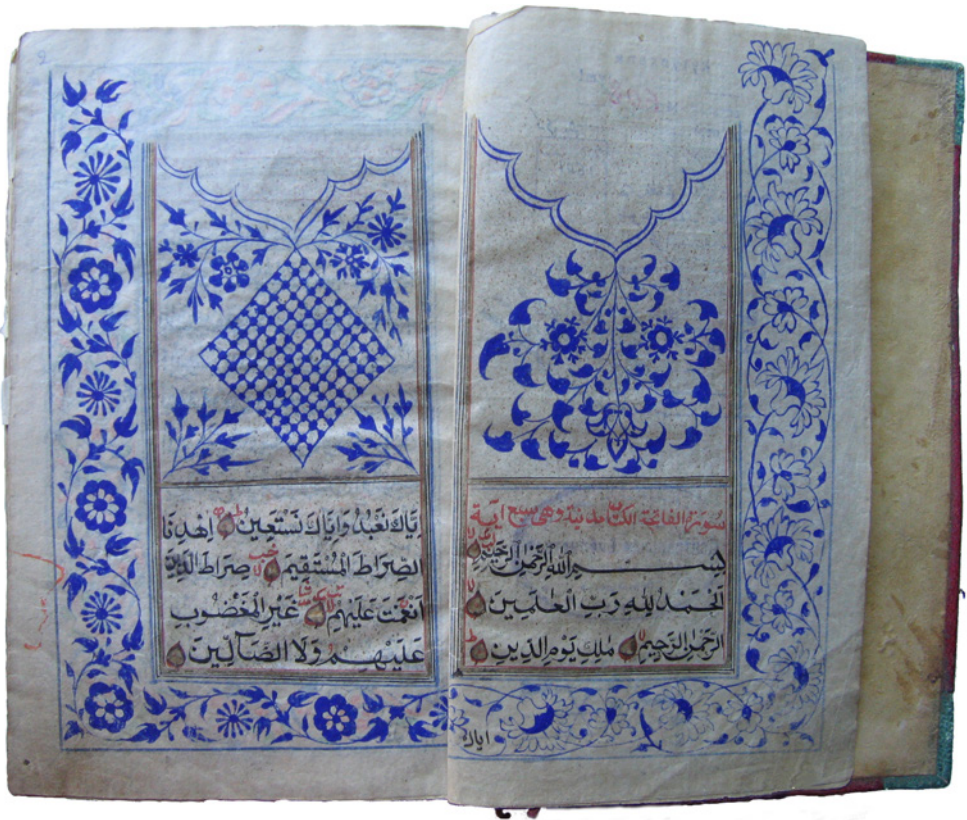 سورة الفاتحة الكتاب مدنية وهى سبع اية
بسم الله الرحمن الرحيم
الحمد لله رب العلمين
الرحمن الرحيم ملك يوم الدين
اياك
اِيَّاكَ نَعْبُدُ وَاِيَّاكَ نَسْتَعِينُ اِهْدِنَا
الصِرَاطَ الْمُسْتَقِيمَ صِرَاطَ الَّذِينَ
اَنْعَمْتَ عَلَيْهِمْ غَيْرِ الْمَغْضُوبِ
عَلَيْهِمْ وَلَا الضَّالِّينَ